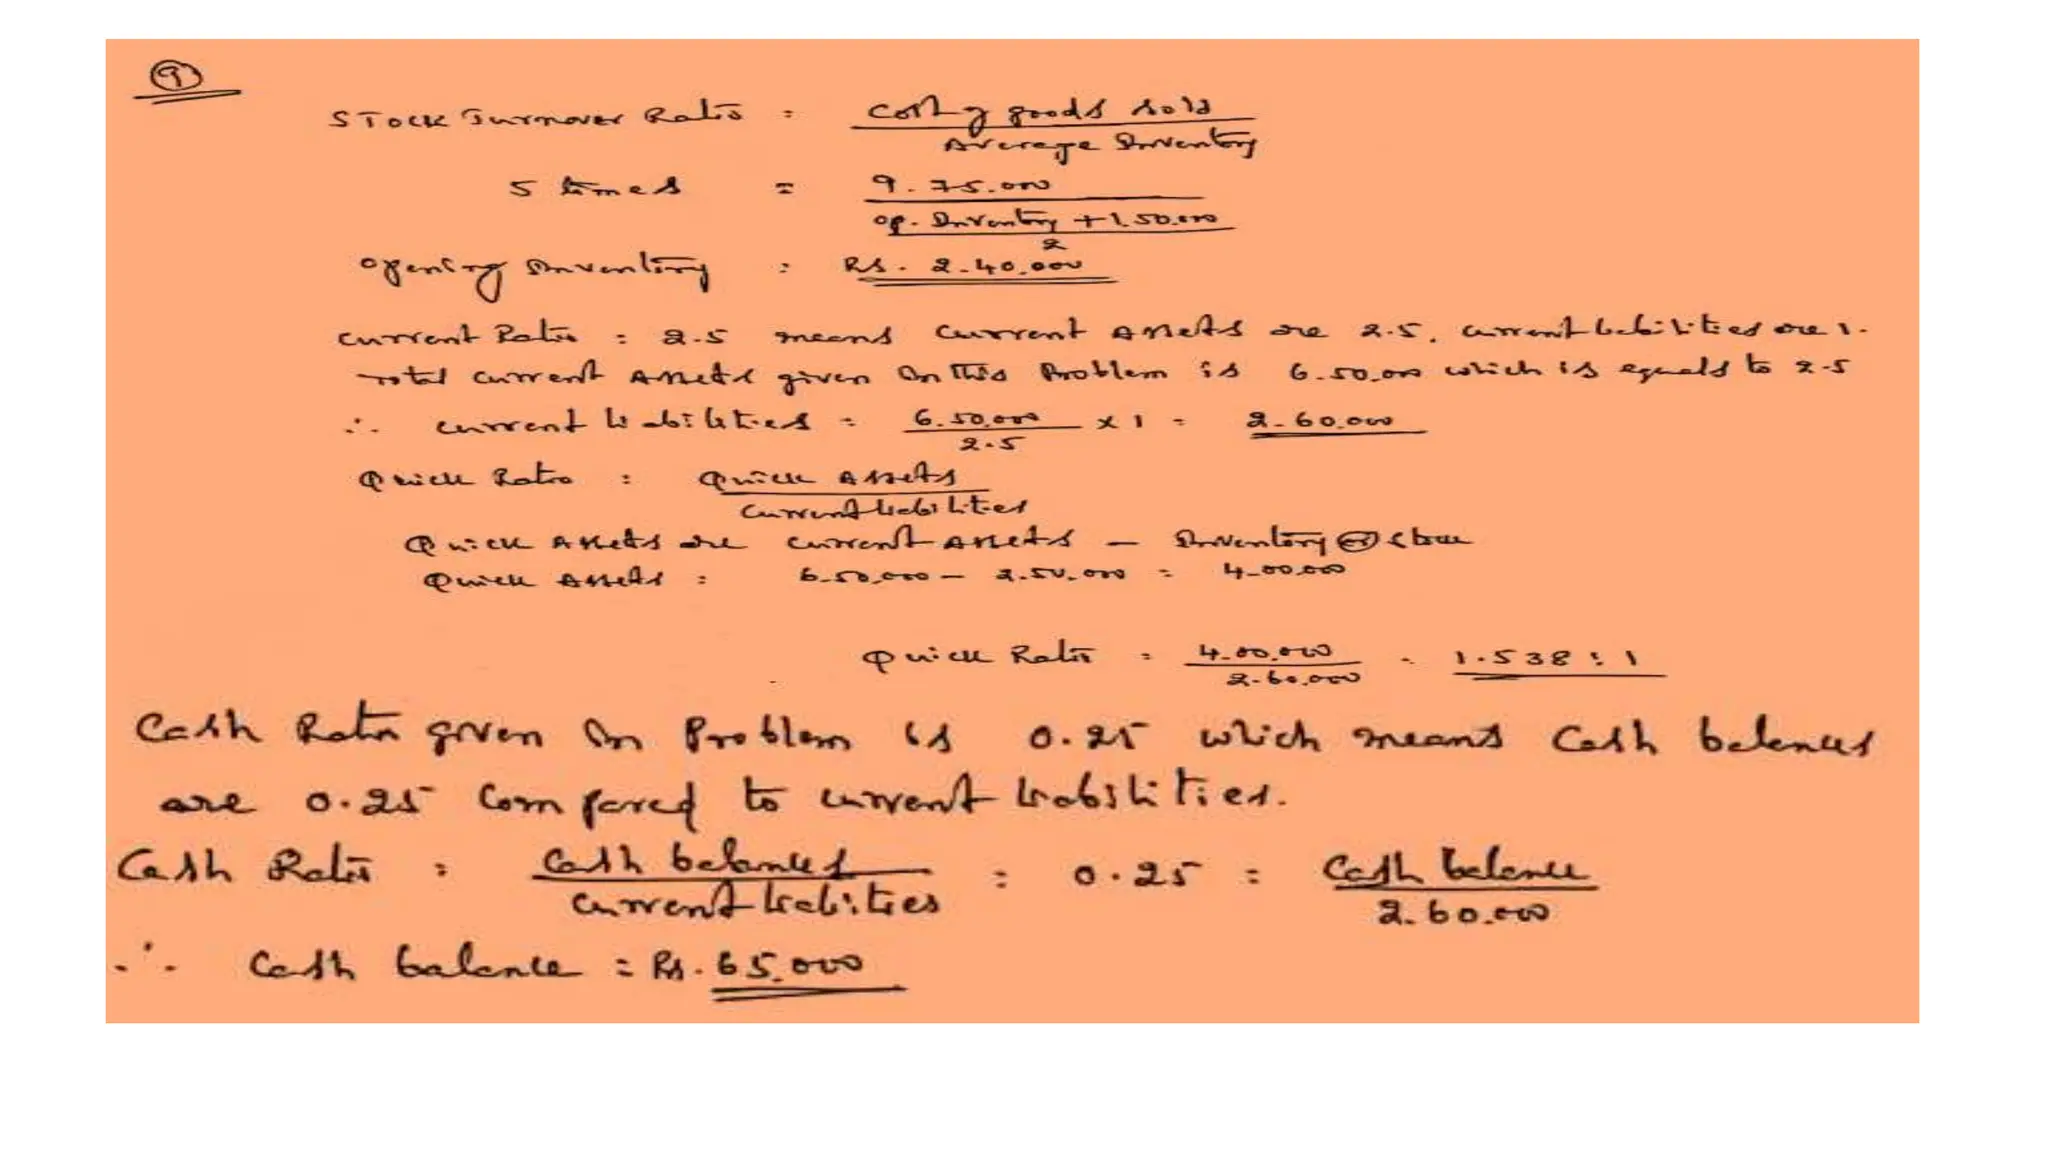 9
Stock Turnover Ratio = Cost of goods sold
Average Inventory
5 times = 9.75.000
op. Inventory + 1.50.000
2
Opening Inventory = Rs. 2.40.000
Current Ratio = 2.5 means Current Assets are 2.5. Current liabilities are 1.
Total Current Assets given in this Problem is 6.50.000 which is equals to 2.5
∴ Current liabilities = 6.50.000 x 1 = 2.60.000
2.5
Quick Ratio = Quick Assets
Current liabilities
Quick Assets are Current Assets - Inventory or Stock
Quick Assets = 6.50.000 - 2.50.000 = 4.00.000
Quick Ratio = 4.00.000 = 1.538 : 1
2.60.000
Cash Ratio given in Problem is 0.25 which means Cash balances
are 0.25 Compared to Current liabilities.
Cash Ratio = Cash balances = 0.25 = Cash balance
Current liabilities 2.60.000
∴ Cash balance = Rs. 65.000